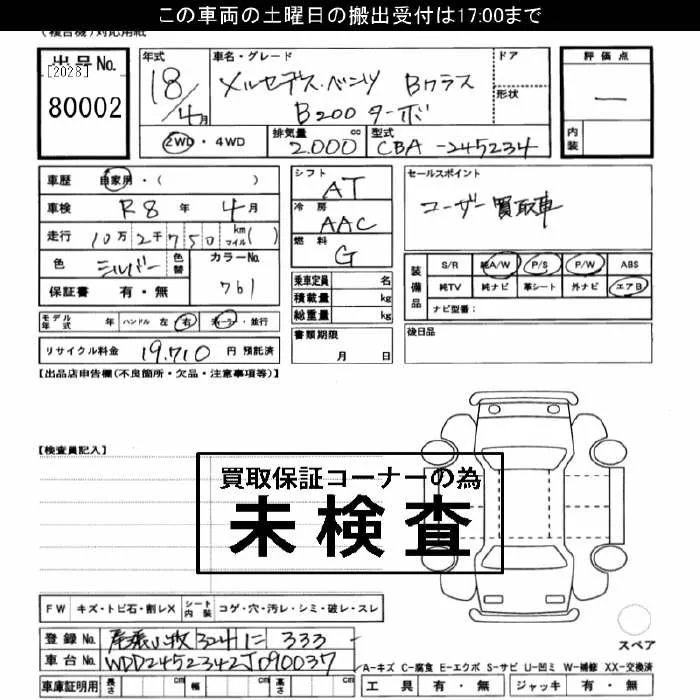 この車両の土曜日の搬出受付は17:00まで
(複合機)対応用紙
出品No. [2028] 80002
年式 18/4月
車名・グレード メルセデス・ベンツ Bクラス B200 ターボ
ドア 形状
評価点 —
内装
2WD・4WD 排気量 2.000 cc 型式 CBA-245234
車歴 自家用・( )
車検 R8年 4月
走行 10万2千750 km マイル( )
色 シルバー 色替 カラーNo. 761
保証書 有・無
シフト AT
冷房 AAC
燃料 G
乗車定員 名
積載量 kg
総重量 kg
書類期限 月 日
セールスポイント
ユーザー買取車
装備品 S/R 純A/W P/S P/W ABS
純TV 純ナビ 革シート 外ナビ エアB
ナビ型番:
後日品
モデル年式 年 ハンドル 左 右 ディーラー・並行
リサイクル料金 19.710 円 預託済
【出品店申告欄(不良箇所・欠品・注意事項等)】
【検査員記入】
買取保証コーナーの為
未検査
FW キズ・トビ石・割レX シート内装 コゲ・穴・汚レ・シミ・破レ・スレ
スペア
登録No. 尾張小牧 324 に 333
車台No. WDD2452342J090037
A-キズ C-腐食 E-エクボ S-サビ U-凹ミ W-補修 XX-交換済
車庫証明用 長さ cm 幅 cm 高さ cm
工具 有・無 ジャッキ 有・無